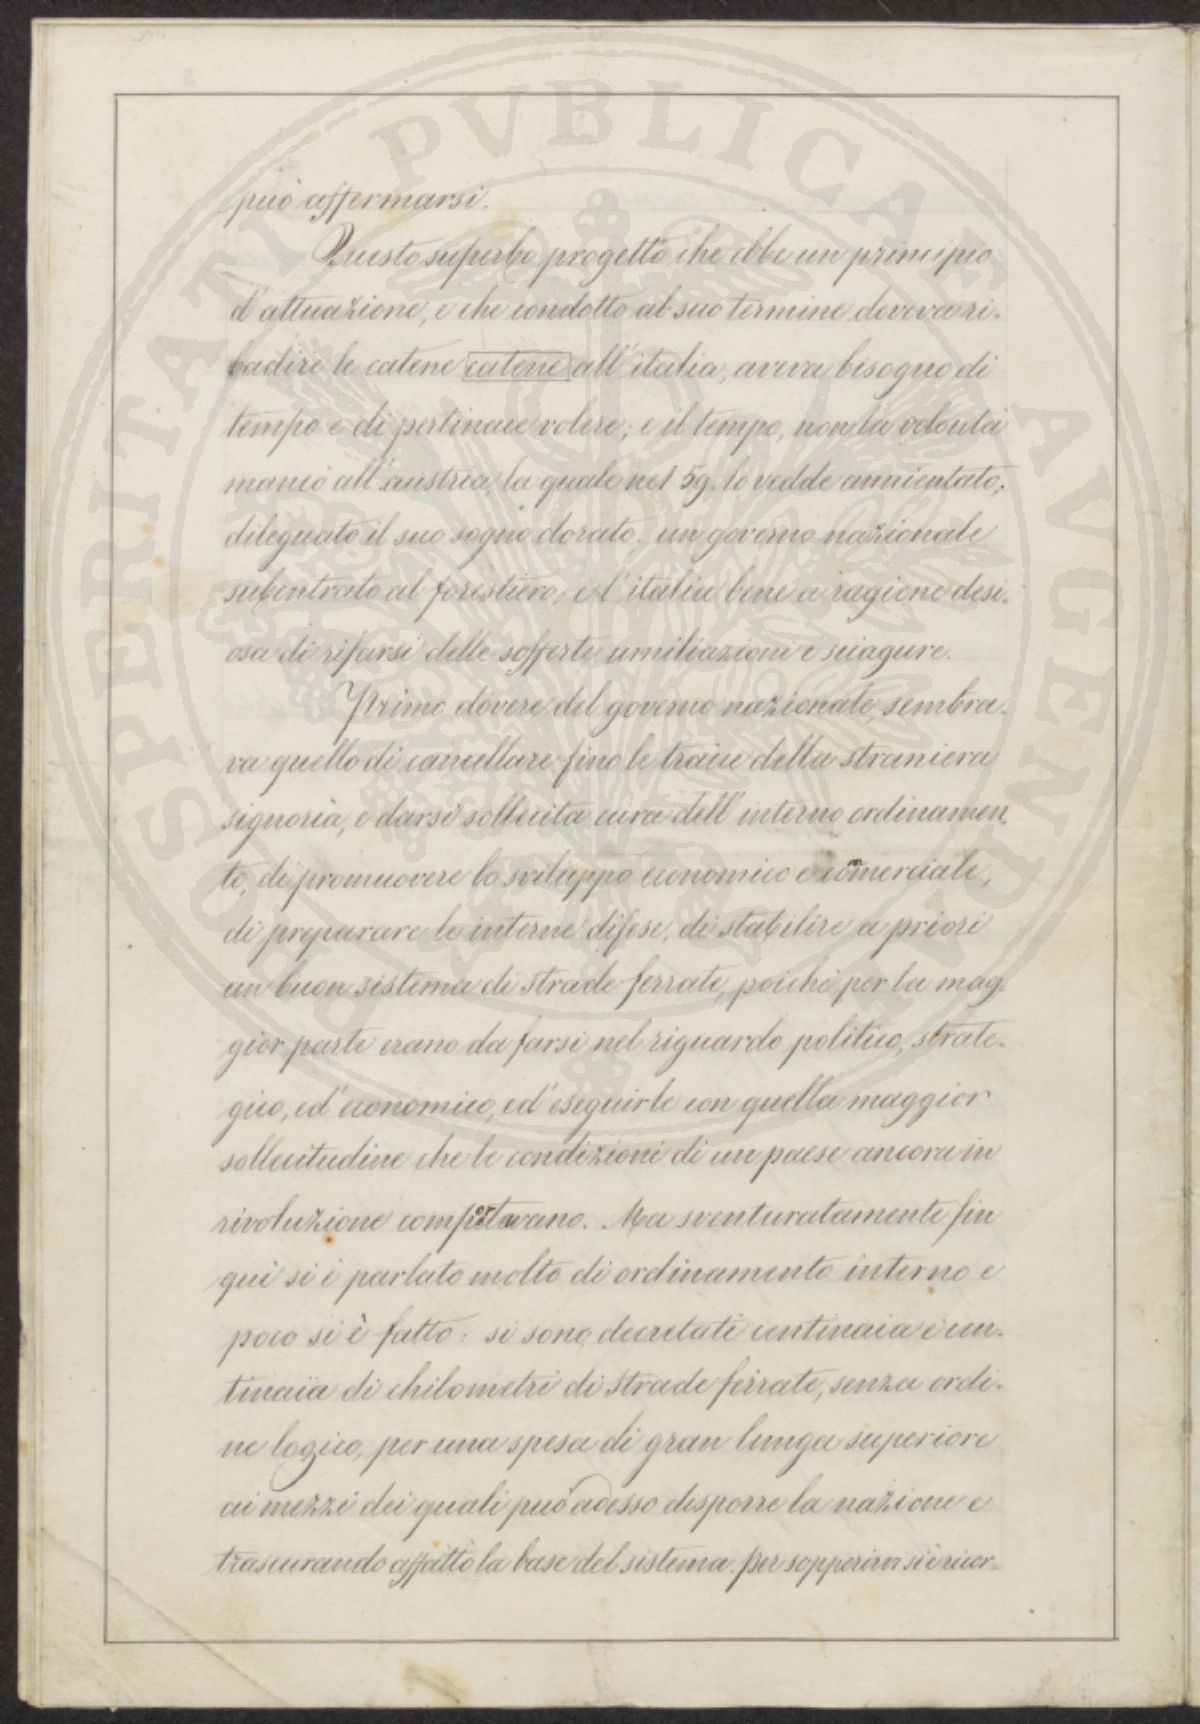 può affermarsi.
Questo superbo progetto che ebbe un principio
d'attuazione, e che condotto al suo termine doveva ri-
badire le catene catene all'italia, aveva bisogno di
tempo e di pertinace volere; e il tempo, non la volontà
mancò all'austria, la quale nel 59. lo vedde annientato;
dileguato il suo sogno dorato, un governo nazionale
subentrato al forestiero, e l'italia bene a ragione desi-
osa di rifarsi delle sofferte umiliazioni e sciagure.
Primo dovere del governo nazionale, sembra-
va quello di cancellare fino le tracce della straniera
signoria, e darsi sollecita cura dell'interno ordinamen-
to, di promuovere lo sviluppo economico e comerciale,
di preparare le interne difese, di stabilire a priori
un buon sistema di strade ferrate, poichè per la mag-
gior parte erano da farsi nel riguardo politico, strate-
gico, ed' economico, ed' eseguirle con quella maggior
sollecitudine che le condizioni di un paese ancora in
rivoluzione comportavano. Ma sventuratamente fin
qui si è parlato molto di ordinamento interno e
poco si è fatto: si sono decretati centinaia e cen-
tinaia di chilometri di strade ferrate, senza ordi-
ne logico, per una spesa di gran lunga superiore
ai mezzi dei quali può adesso disporre la nazione e
trascurando affatto la base del sistema. per sopperirvi si è ricor-
PROSPERITATI PVBLICAE AVGENDAE